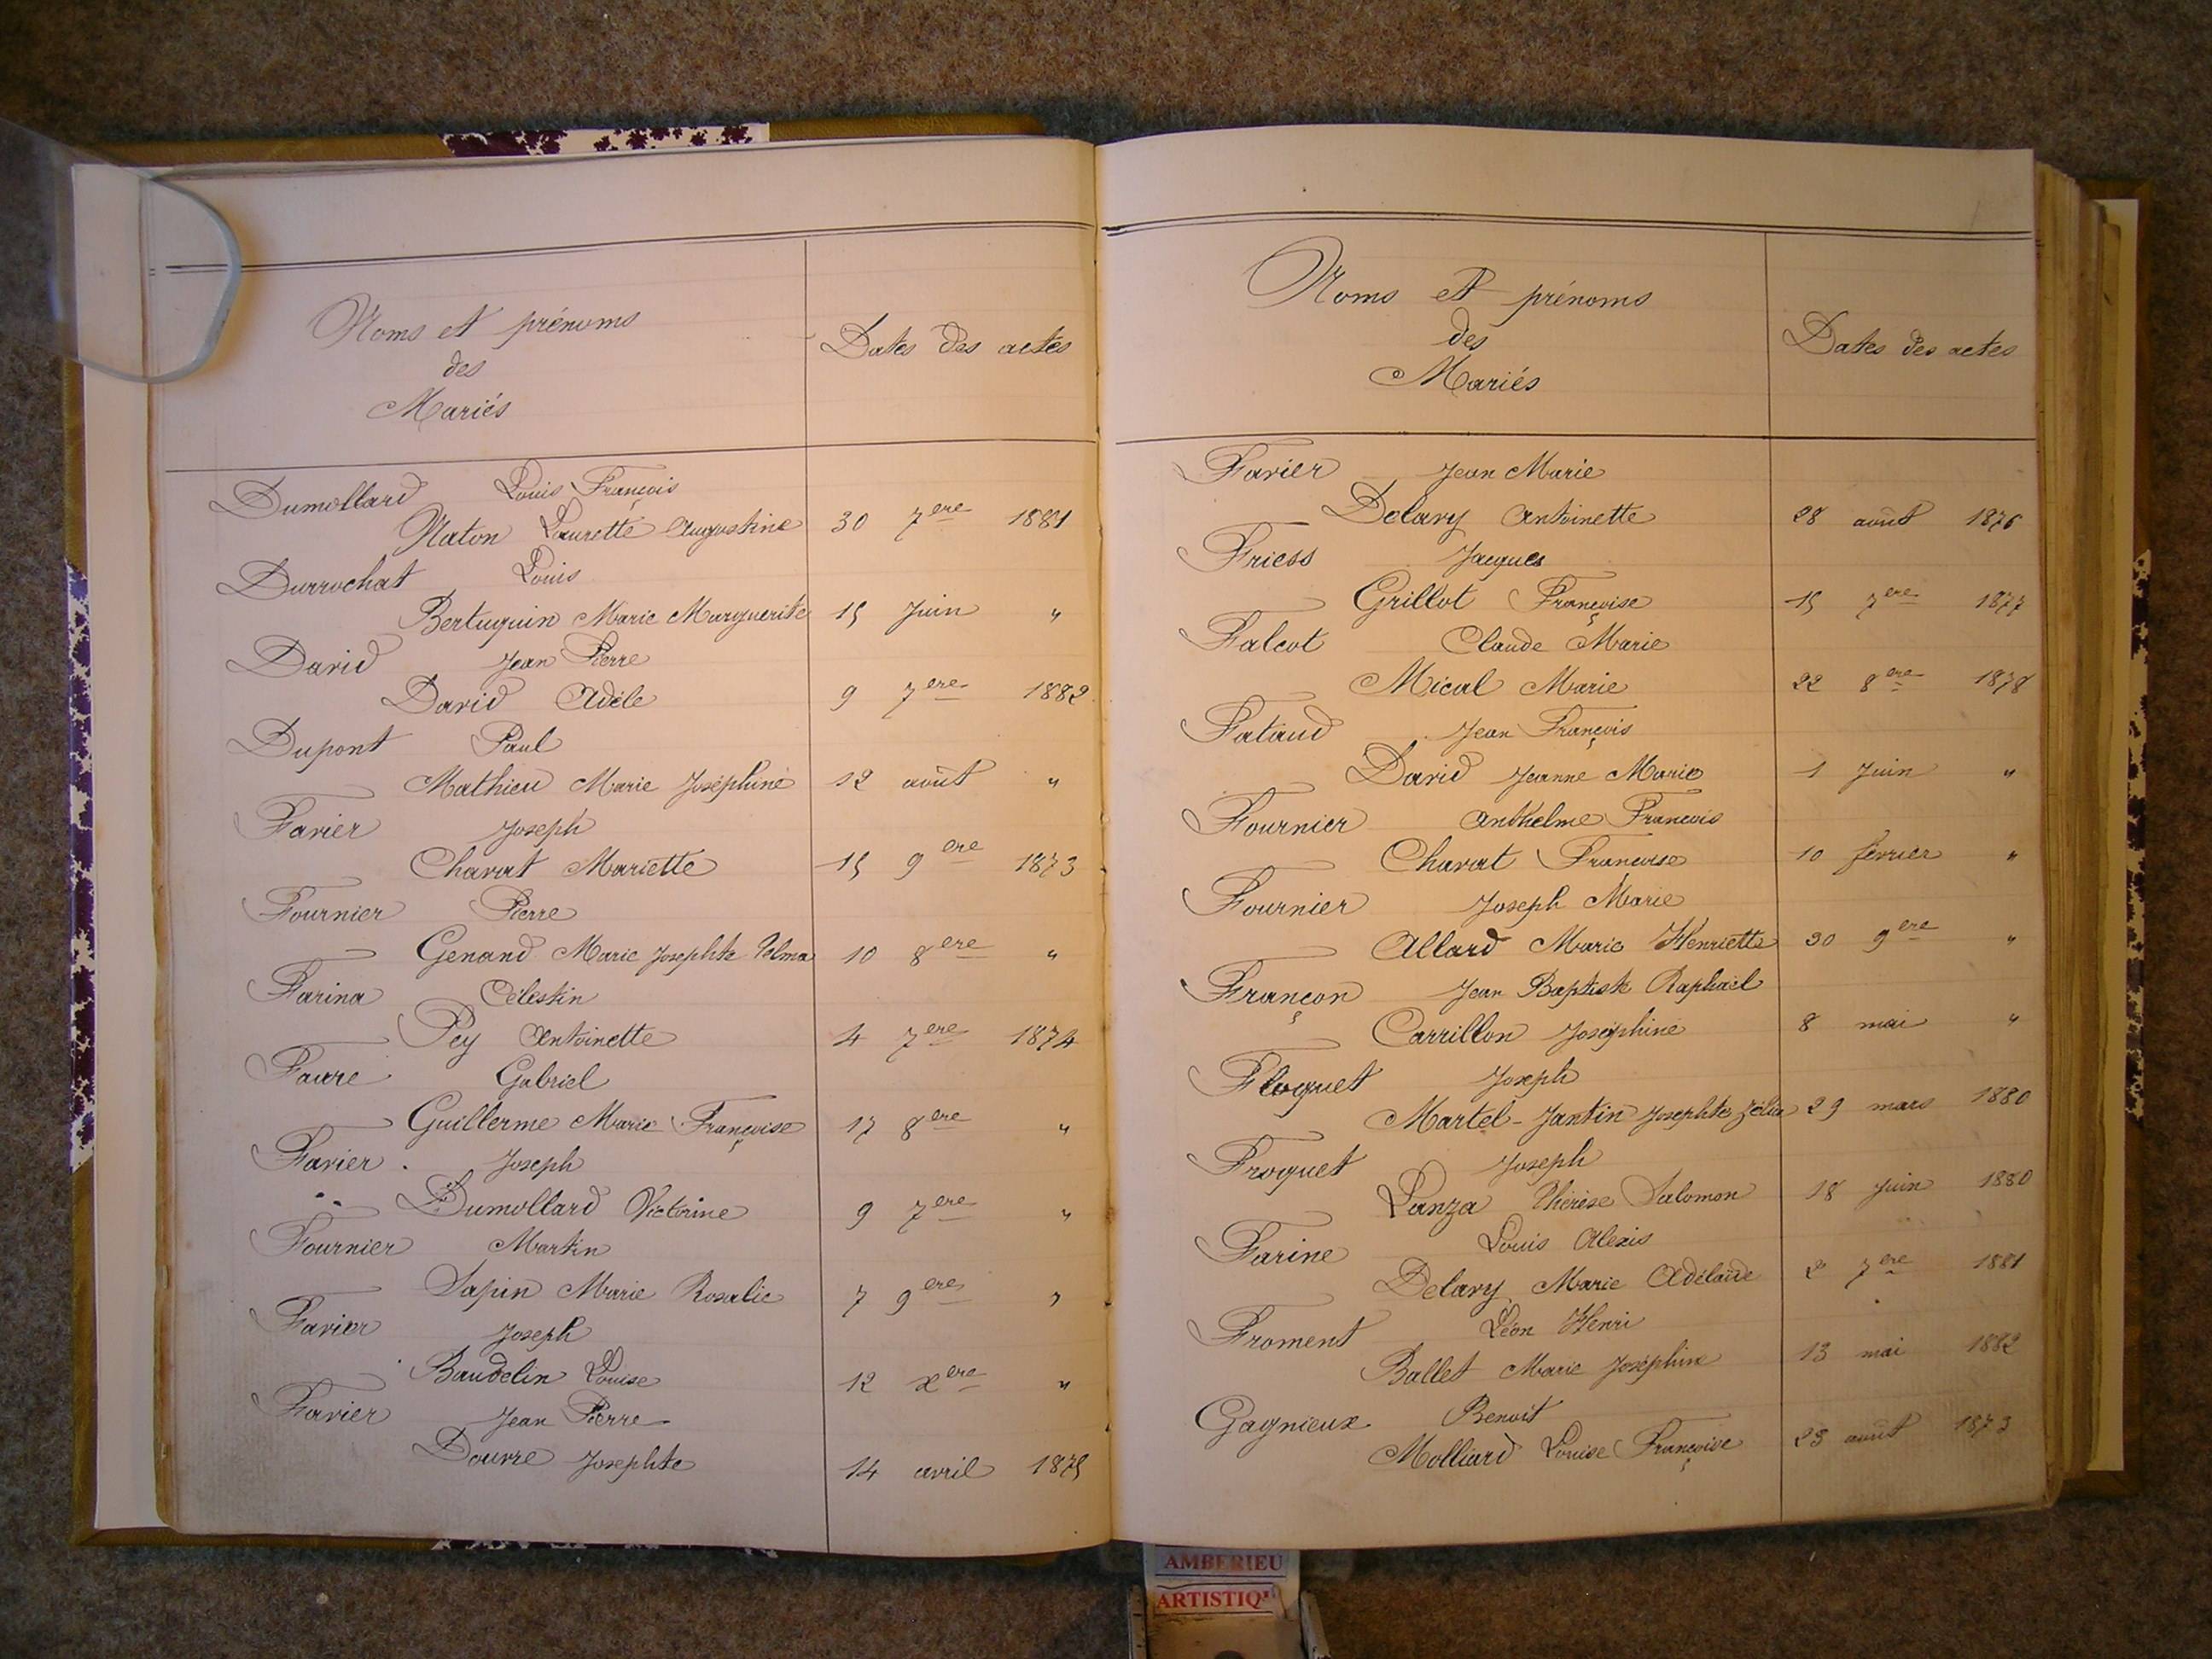 Noms et prénoms
des
Mariés
Dates des actes
Dumollard Louis François
Naton Laurette Augustine 30 7ere 1881
Durrochat Louis
Bertuquin Marie Marguerite 15 Juin "
David Jean Pierre
David Adèle 9 7ere 1882
Dupont Paul
Mathieu Marie Joséphine 12 août "
Favier Joseph
Chavat Mariette 15 9ere 1873
Fournier Pierre
Genand Marie Josephte 10 8ere "
Farina Célestin
Pey Antoinette 4 7ere 1874
Faure Gabriel
Guillerme Marie Françoise 17 8ere "
Favier Joseph
Dumollard Victorine 9 7ere "
Fournier Martin
Sapin Marie Rosalie 7 9ere "
Favier Joseph
Baudelin Louise 12 xere "
Favier Jean Pierre
Dourre Josephte 14 avril 1875
Noms et prénoms
des
Mariés
Dates des actes
Favier Jean Marie
Delavy Antoinette 28 août 1876
Friess Jacques
Grillot Françoise 15 7ere 1877
Falcot Claude Marie
Mical Marie 22 8ere 1878
Fataud Jean François
David Jeanne Marie 1 Juin "
Fournier Anthelme François
Chavat Françoise 10 février "
Fournier Joseph Marie
Allard Marie Henriette 30 9ere "
Françon Jean Baptiste Raphaël
Carrillon Joséphine 8 mai "
Floquet Joseph
Martel-Jantin Josephte Zélie 29 mars 1880
Froquet Joseph
Lanza Thérèse Salomon 18 Juin 1880
Farine Louis Alexis
Delavy Marie Adélaïde 2 7ere 1881
Froment Léon Henri
Ballet Marie Joséphine 13 mai 1882
Gagnieux Benoit
Molliard Louise Françoise 23 août 1873
AMBERIEU